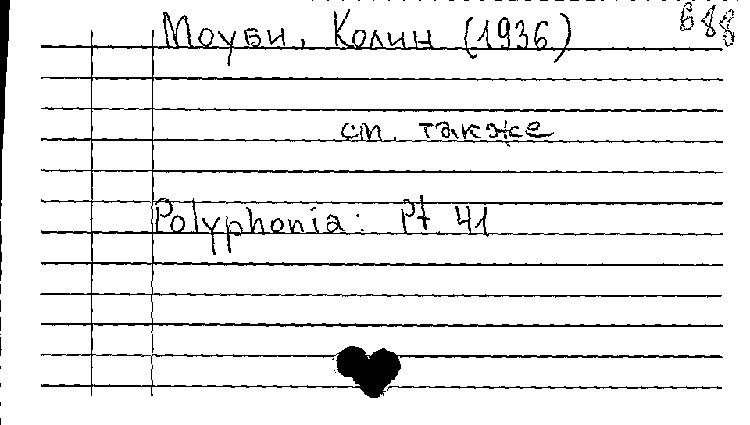 688
Моуби, Колин (1936)
см. также
Polyphonia: Pt 41